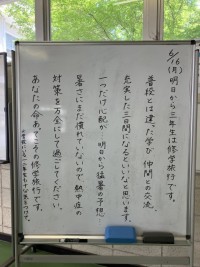 6/16(月)
明日から三年生は修学旅行です。
普段とは違った学び 仲間との交流
充実した三日間になるといいなと思います。
一つだけ心配が 明日から猛暑の予想
暑さにまだ慣れていないので熱中症の
対策を万全にして過ごしてください。
あなたの命あっての修学旅行です。